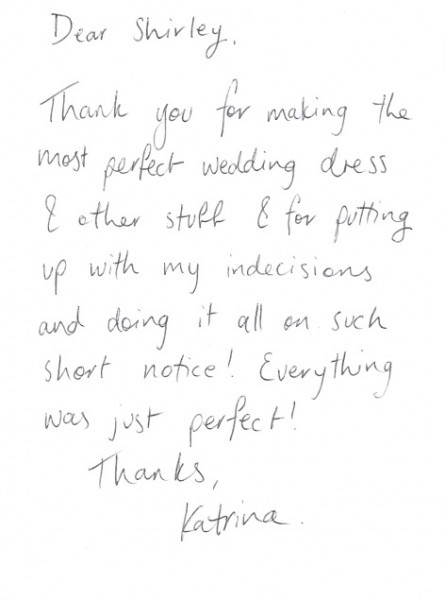 Dear Shirley,
Thank you for making the
most perfect wedding dress
& other stuff & for putting
up with my indecisions
and doing it all on such
short notice! Everything
was just perfect!
Thanks,
Katrina.